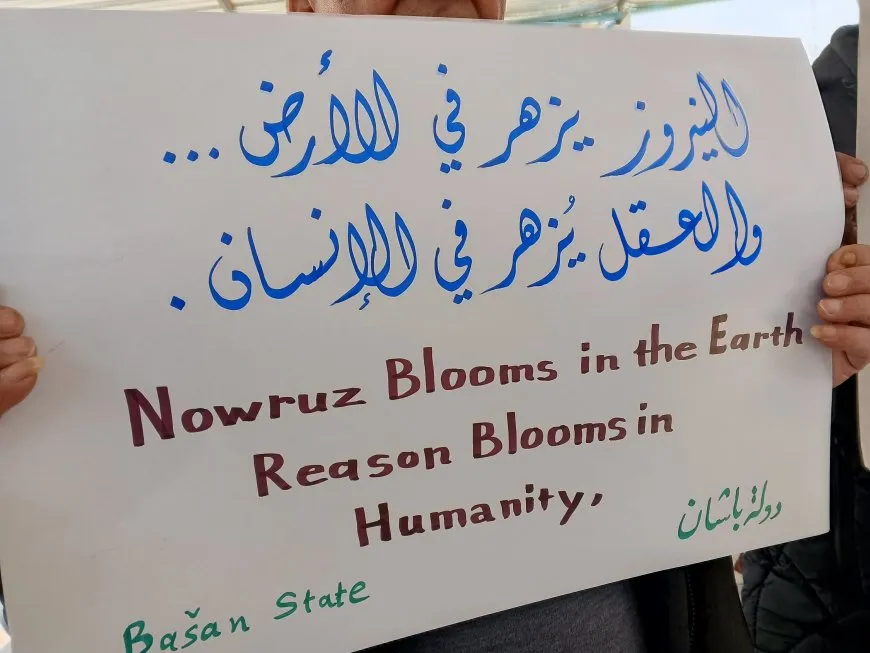 النيروز يزهر في الأرض ...
والعقل يُزهر في الإنسان .
Nowruz Blooms in the Earth
Reason Blooms in
Humanity,
دولة باشان
Bašan State